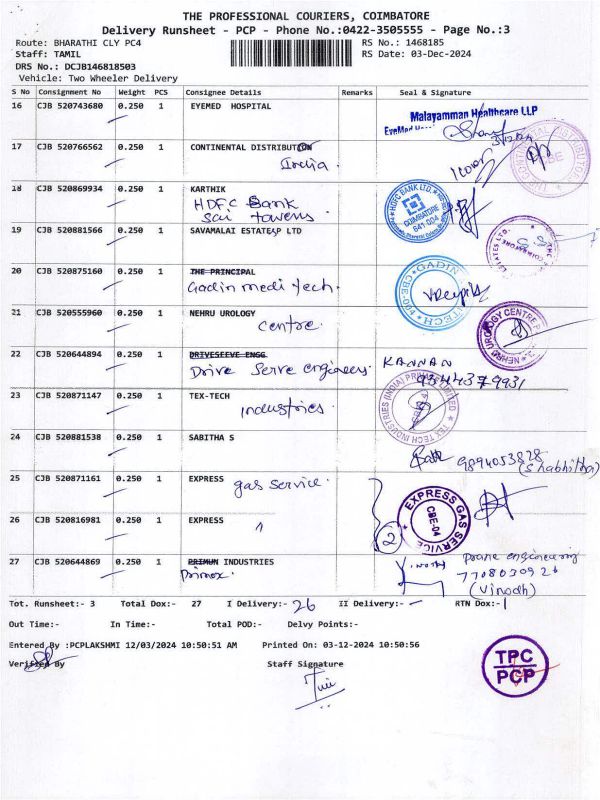 THE PROFESSIONAL COURIERS, COIMBATORE
Delivery Runsheet - PCP - Phone No.:0422-3505555 - Page No.:3
Route: BHARATHI CLY PC4 RS No.: 1468185
Staff: TAMIL RS Date: 03-Dec-2024
DRS No.: DCJB146818503
Vehicle: Two Wheeler Delivery
S No Consignment No Weight PCS Consignee Details Remarks Seal & Signature
16 CJB 520743680 0.250 1 EYEMED HOSPITAL
Malayamman Healthcare LLP
17 CJB 520766562 0.250 1 CONTINENTAL DISTRIBUTION
India.
18 CJB 520869934 0.250 1 KARTHIK
HDFC Bank
Sai towers.
HDFC BANK LTD.
COIMBATORE
641 004
19 CJB 520881566 0.250 1 SAVAMALAI ESTATES P LTD
ESTATES LTD.
20 CJB 520875160 0.250 1 THE PRINCIPAL
Gadin medi tech.
GADIN
21 CJB 520555960 0.250 1 NEHRU UROLOGY
Centre.
NEHRU UROLOGY CENTRE
22 CJB 520644894 0.250 1 DRIVESEEVE ENGG
Drive Serve engineers
KANNAN
9344379931
23 CJB 520871147 0.250 1 TEX-TECH
industries.
TEX TECH INDUSTRIES (INDIA) PRIVATE LIMITED
24 CJB 520881538 0.250 1 SABITHA S
9894053828
(Shabhitha)
25 CJB 520871161 0.250 1 EXPRESS
gas service.
26 CJB 520816981 0.250 1 EXPRESS
2
EXPRESS GAS SERVICE
CBE-04
27 CJB 520644869 0.250 1 PRIMUN INDUSTRIES
Primox.
engineering
7708030926
(Vinodh)
Tot. Runsheet:- 3 Total Dox:- 27 I Delivery:- 26 II Delivery:- - RTN Dox:- 1
Out Time:- In Time:- Total POD:- Delvy Points:-
Entered By :PCPLAKSHMI 12/03/2024 10:50:51 AM Printed On: 03-12-2024 10:50:56
Verified By Staff Signature
TPC
PCP